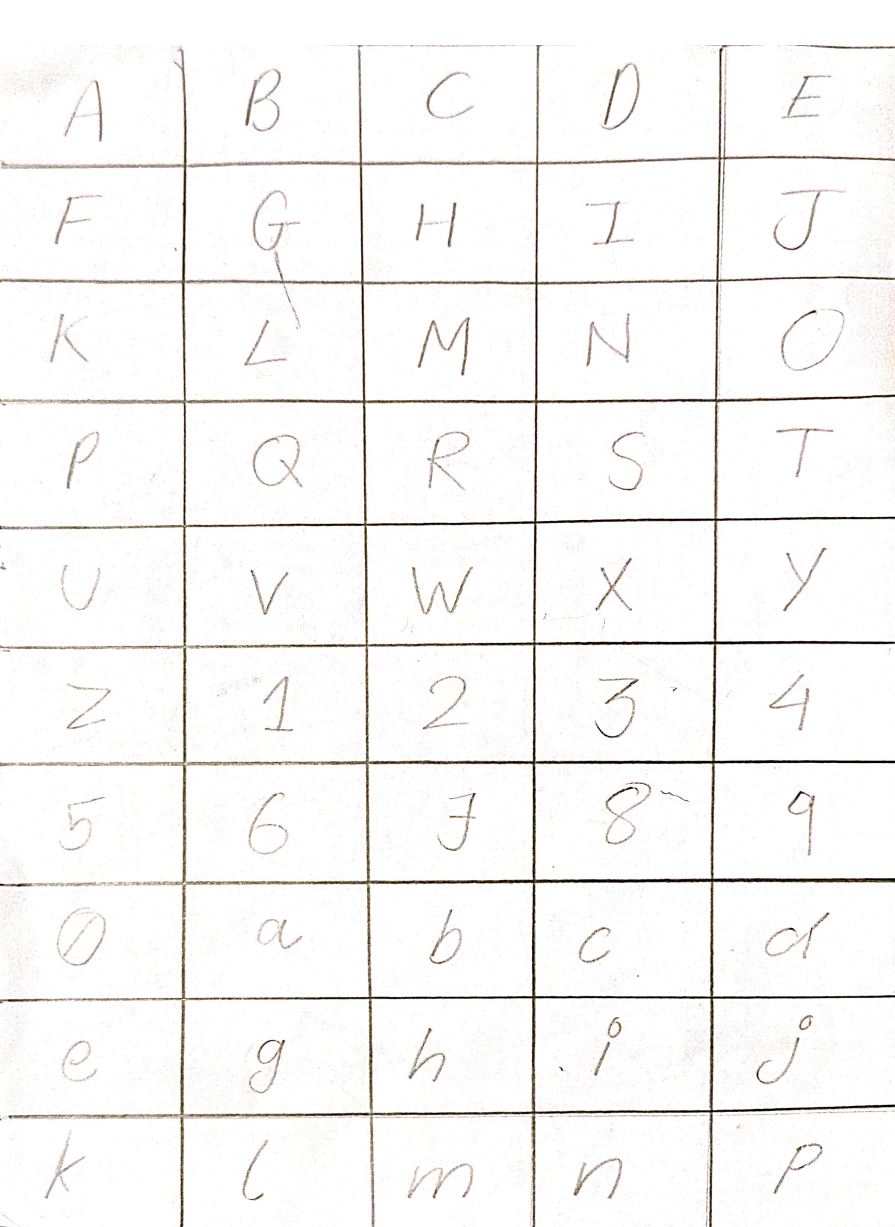 A B C D E
F G H I J
K L M N O
P Q R S T
U V W X Y
Z 1 2 3 4
5 6 7 8 9
0 a b c d
e g h i j
k l m n p